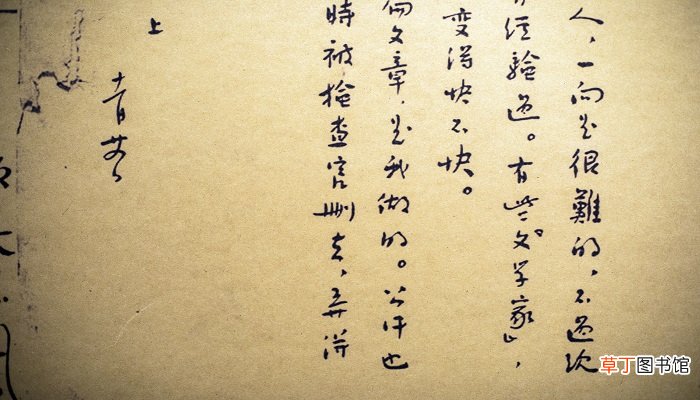 人，一向是很難的，不過現
经驗過。有些『文学家』，
变得快不快。
篇文章，是我做的。公汗也
時被检查官删去，弄得
上
草丁图书馆